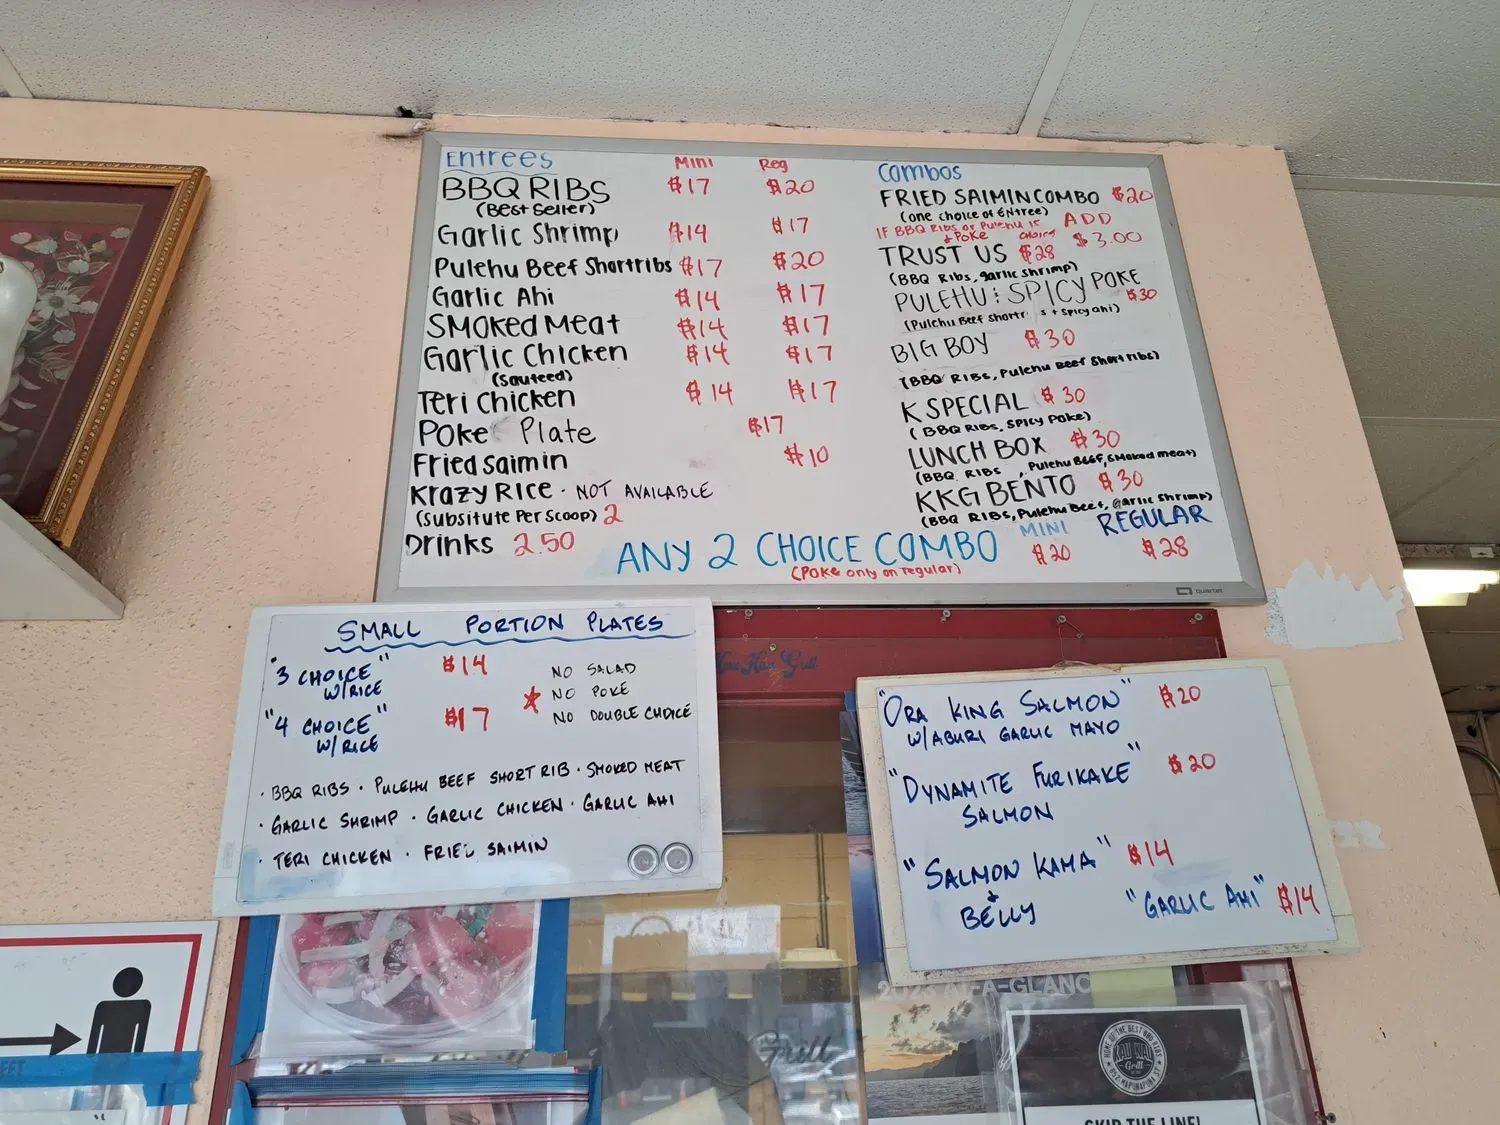 Entrees Mini Reg
BBQ RIBS $17 $20
(Best Seller)
Garlic Shrimp $14 $17
Pulehu Beef Shortribs $17 $20
Garlic Ahi $14 $17
Smoked Meat $14 $17
Garlic Chicken $14 $17
(Sauteed)
Teri Chicken $14 $17
Poke Plate $17
Fried Saimin $10
Krazy Rice · NOT AVAILABLE
(Subsitute Per Scoop) 2
Drinks 2.50
Combos
FRIED SAIMIN COMBO $20
(one choice of Entree)
IF BBQ Ribs or Pulehu IF ADD
& Poke choice $3.00
TRUST US $28
(BBQ Ribs, garlic shrimp)
PULEHU & SPICY POKE $30
(Pulehu Beef Short s + Spicy ahi)
BIG BOY $30
(BBQ RIBS, Pulehu Beef Short ribs)
K SPECIAL $30
(BBQ RIBS, SPICY POKE)
LUNCH BOX $30
(BBQ RIBS , Pulehu BEEF, Smoked meat)
KKG BENTO $30
(BBQ RIBS, Pulehu Beef, Garlic Shrimp)
ANY 2 CHOICE COMBO MINI $20 REGULAR $28
(Poke only on regular)
SMALL PORTION PLATES
"3 CHOICE" $14
W/RICE
"4 CHOICE" $17
W/RICE
NO SALAD
* NO POKE
NO DOUBLE CHOICE
· BBQ RIBS · PULEHU BEEF SHORT RIB · SMOKED MEAT
· GARLIC SHRIMP · GARLIC CHICKEN · GARLIC AHI
· TERI CHICKEN · FRIED SAIMIN
"ORA KING SALMON" $20
W/ABURI GARLIC MAYO
"DYNAMITE FURIKAKE" $20
SALMON
"SALMON KAMA" $14
& BELLY
"GARLIC AHI" $14
quartet
Kau Kau Grill
Grill
AT-A-GLANC
HOME OF THE BEST BBQ RIBS
KAU KAU
Grill
SKIP THE LINE!